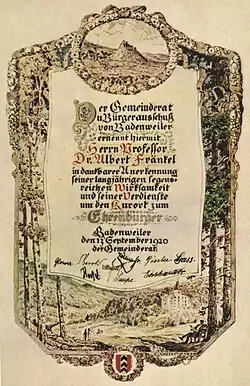 Der Gemeinderat
u Bürgerausschuß
von Badenweiler
ernennt hiermit
Herrn Professor
Dr. Albert Fränkel
in dankbarer Anerkennung
seiner langjährigen segens-
reichen Wirksamkeit
und seiner Verdienste
um den Kurort zum
Ehrenbürger
Badenweiler
den 17. September 1920
der Gemeinderat